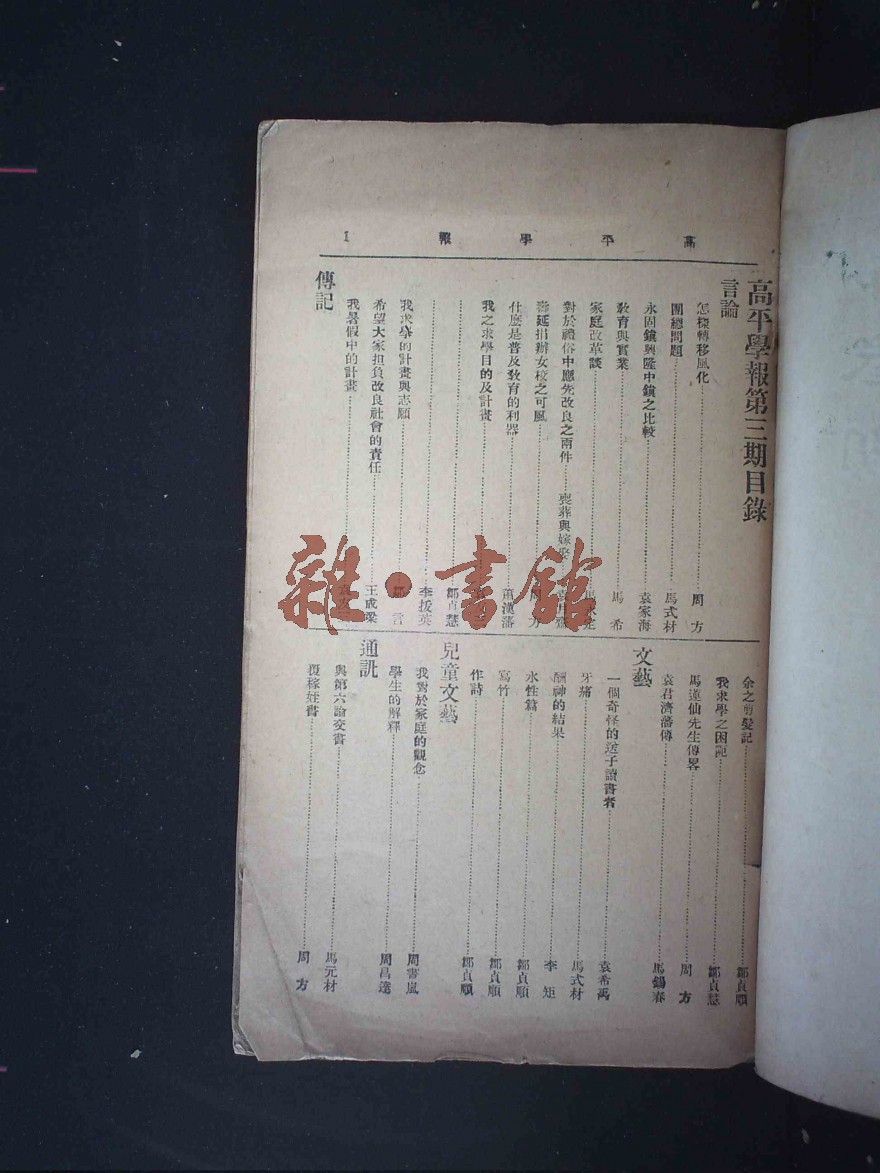 高平學報 1
高平學報第三期目錄
言論
怎樣轉移風化 周方
團總問題 馬式材
永固鎮與隆中鎮之比較 袁家海
教育與實業 馬希
家庭改革談
對於禮俗中應先改良之兩件 喪葬與嫁娶
捐辦女校之可風 周方
什麼是普及教育的利器 蕭漢藩
我之求學目的及計畫
鄒貞慧
李拔英
我求學的計畫與志願 言
希望大家担負改良社會的責任 王成梁
我暑假中的計畫
傳記
余之剪髮記 鄒貞順
我求學之困阨 鄒貞慧
馬蓮仙先生傳畧 周方
袁君濟藩傳 馬錫春
文藝
一個奇怪的送子讀書者 袁希禹
牙痛 馬式材
酬神的結果 李矩
水性篇 鄒貞順
寫竹 鄒貞順
作詩 鄒貞順
兒童文藝
我對於家庭的觀念 周書嵐
學生的解釋 周昌達
通訊
與第六論交書 馬元材
覆稼姪書 周方
雜·書館